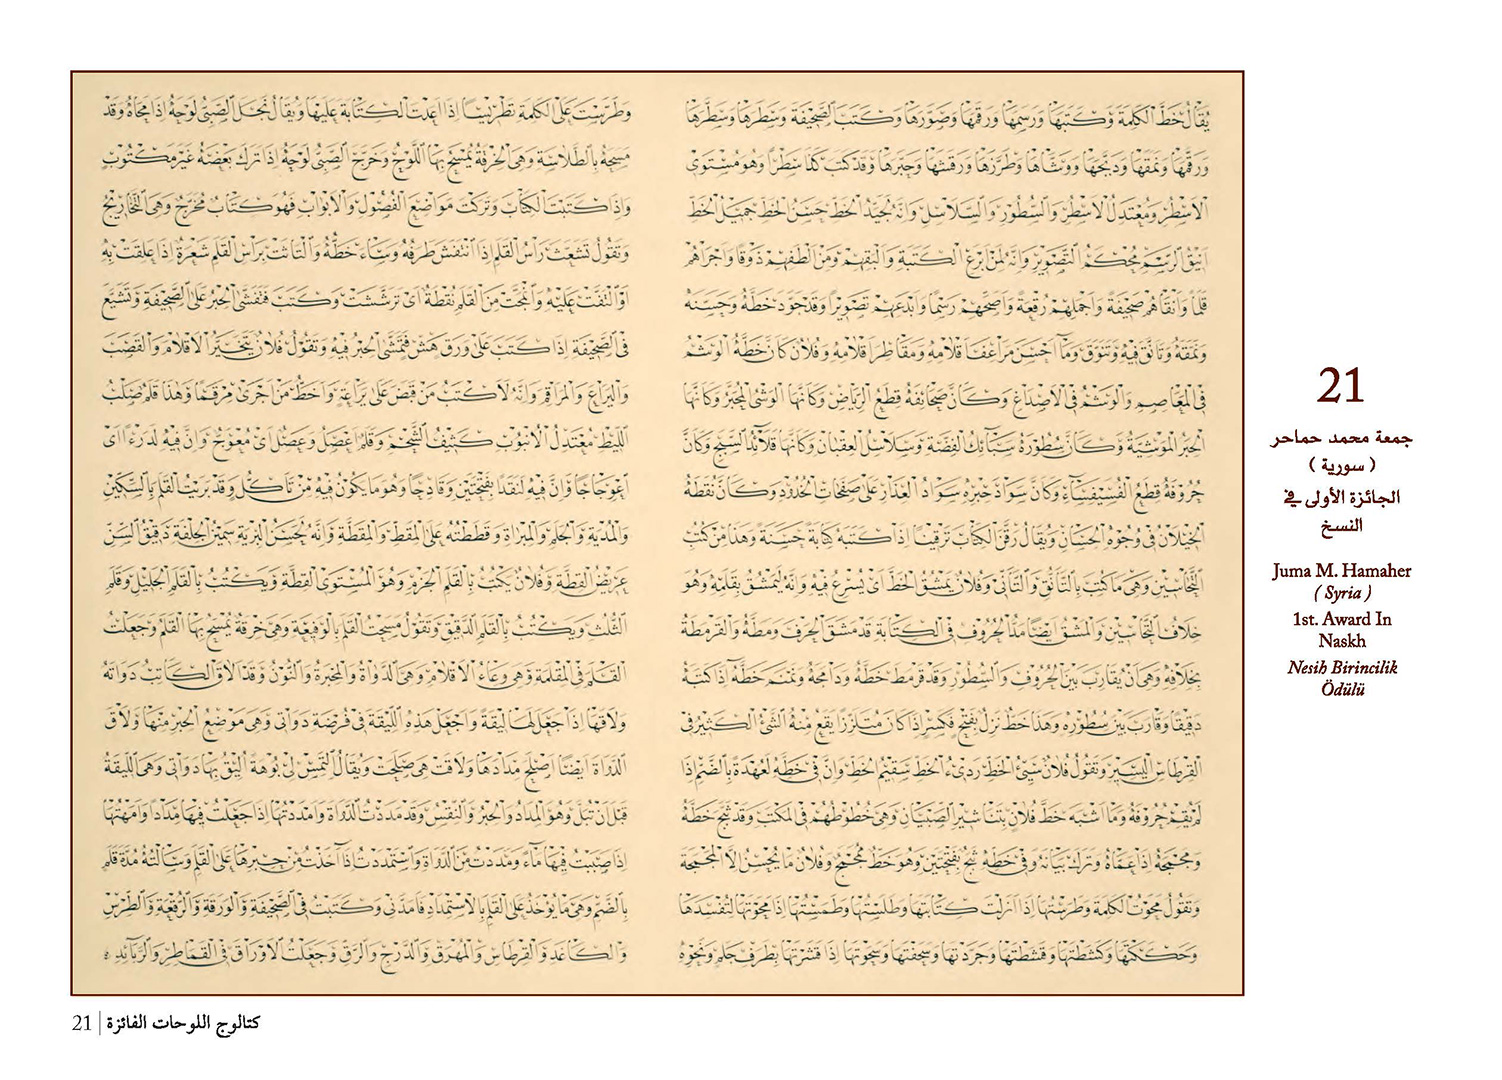 يقال خط الكلمة وكتبها ورسمها ورقمها وصورها وكتب الصحيفة وسطرها وسطرها
ورقمها ونمقها ودبجها ووشاها وطرزها ورقشها وحبرها وقد كتب كذا سطرا وهو مستوي
الاسطر ومعتدل الاسطر والسطور والسلاسل وانه لجيد الخط حسن الخط جميل الخط
انيق الرسم محكم التصوير وانه لمن ابرع الكتبة والبقهم ومن الطفهم ذوقا واجراهم
قلما وانقاهم صحيفة واجملهم رقعة واصحهم رسما وابدعهم تصويرا وقد جود خطه وحسنه
ونمقه وتانق فيه وتنوق وما احسن مراعف اقلامه ومقاطر اقلامه وفلان كان خطه الوشم
في المعاصم والوشم في الاصداغ وكان صحائفه قطع الرياض وكانها الوشي المحبر وكانها
الحبر الموشية وكان سطوره سبائك الفضة وسلاسل العقيان وكانها قلائد السبج وكان
حروفه قطع الفسيفساء وكان سواد حبره سواد العذار على صفحات الخدود وكان نقطه
الخيلان في وجوه الحسان ويقال رقن الكتاب ترقينا اذا كتبه كتابة حسنة وهذا من كتب
التحاسين وهي ما كتب بالتانق والتاني وفلان يمشق الخط اي يسرع فيه وانه ليمشق بقلمه وهو
خلاف التحاسين والمشق ايضا مد الحروف في الكتابة قد مشق الحرف ومطه والقرمطة
بخلافه وهي ان يقارب بين الحروف والسطور وقد قرمط خطه ودامجه ونمنم خطه اذا كتبه
دقيقا وقارب بين سطوره وهذا خط نزل بفتح فكسر اذا كان متلززا يقع منه الشئ الكثير في
القرطاس اليسير وتقول فلان سيئ الخط ردئ الخط سقيم الخط وان في خطه لعهدة بالضم اذا
لم يقم حروفه وما اشبه خط فلان بتناشير الصبيان وهي خطوطهم في المكتب وقد ثبج خطه
ومجمجه اذا عماه وترك بيانه وفي خطه ثبج بفتحتين وهو خط مجمج وفلان ما يحسن الا المجمجة
وتقول محوت الكلمة وطرستها اذا ازلت كتابتها وطلستها وطمستها اذا محوتها لتفسدها
وحككتها وكشطتها وقشطتها وجردتها وسحفتها وسحوتها اذا قشرتها بطرف جلم ونحوه
وطرست على الكلمة تطريسا اذا اعدت الكتابة عليها ويقال نجل الصبي لوحه اذا محاه وقد
مسحه بالطلاسة وهي الخرقة يمسح بها اللوح وخرج الصبي لوحه اذا ترك بعضه غير مكتوب
واذا كتبت الكتاب وتركت مواضع الفصول والابواب فهو كتاب مخرج وهي التخاريج
وتقول تشعث راس القلم اذا انتفش طرفه وساء خطه والتاثت براس القلم شعرة اذا علقت به
او التفت عليه وانمجت من القلم نقطة اي ترششت وكتب فتفشى الحبر على الصحيفة وتشيع
في الصحيفة اذا كتب على ورق هش فتمشى الحبر فيه وتقول فلان يتخير الاقلام والقصب
واليراع والمراقم وانه لاكتب من قبض على يراعة واخط من اجرى مرقما وهذا قلم صلب
الليط معتدل الانبوب كثيف الشحم وقلم اعصل وعصل اي معوج وان فيه لدرءا اي
اعوجاجا وان فيه لنقدا بفتحتين وقادحا وهو ما يكون فيه من تاكل وقد بريت القلم بالسكين
والمدية والجلم والمبراة وقططته على المقط والمقطة وانه لحسن البرية سمين الجلفة دقيق السن
عريض القطة وفلان يكتب بالقلم الجزم وهو المستوي القطة ويكتب بالقلم الجليل وقلم
الثلث ويكتب بالقلم الدقيق وتقول مسحت القلم بالوفيعة وهي خرقة يمسح بها القلم وجعلت
القلم في المقلمة وهي وعاء الاقلام وهي الدواة والمحبرة والنون وقد الاق الكاتب دواته
ولاقها اذا جعل لها ليقة واجعل هذه الليقة في فرضة دواتي وهي موضع الحبر منها ولاق
الدواة ايضا اصلح مدادها ولاقت هي صلحت ويقال التمس لي بوهة اليق بها دواتي وهي الليقة
قبل ان تبل وهو المداد والحبر والنقس وقد مددت الدواة وامددتها اذا جعلت فيها مدادا وامهتها
اذا صببت فيها ماء ومددت من الدواة واستمددت اذا اخذت من حبرها على القلم وسالته مدة قلم
بالضم وهي ما يؤخذ على القلم بالاستمداد فامدني وكتبت في الصحيفة والورقة والرقعة والطرس
والكاغد والقرطاس والمهرق والدرج والرق وجعلت الاوراق في القماطر والربائد
21
جمعة محمد حماحر
( سورية )
الجائزة الأولى في
النسخ
Juma M. Hamaher
( Syria )
1st. Award In
Naskh
Nesih Birincilik
Ödülü
21 | كتالوج اللوحات الفائزة